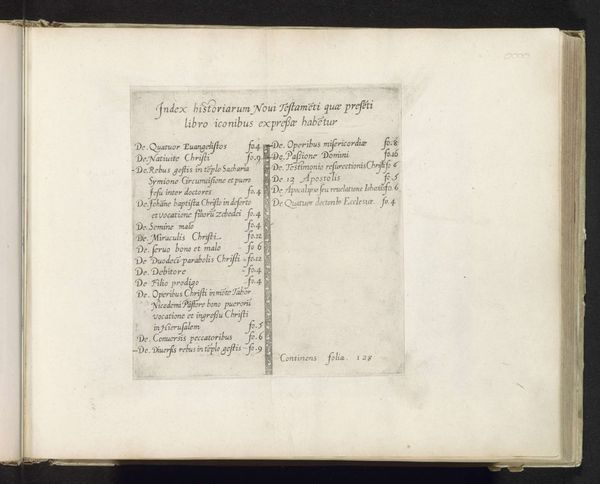 Index historiarum Novi Testamēti quæ presēti
libro iconibus expreßæ habētur
De. Quatuor Euangelistos fo.4
De. Natiuite Christi fo.9
De. Rebus gestis in tēplo Sacharia
Symione Circumcisione et puero
Jesu inter doctores fo.4
De. Johāne baptista Christo in deserto
et vocatione filiorū zebedei fo.4
De. Semine malo fo.4
De. Miraculis Christi fo.12
De. seruo bono et malo fo 6
De Duodeci parabolis Christi fo.12
De. Debitore fo.4
De Filio prodigo fo.4
De. Operibus Christi in mōte Tabor
Nicodemi Pastore bono puerorū
vocatione et ingressu Christi
in Hierusalem fo.5
De. Conuersis peccatoribus fo.6
De. Diuersis rebus in tēplo gestis fo.9
De. Operibus misericordiæ fo.8
De. Passione Domini fo.16
De. Testimonio resurectionis Christi fo 6
De 12 Apostolis fo.5
De. Apocalipsi seu reuelatione fo.6
De Quatuor doctorib Ecclesiæ fo.4
Continens folia. 128